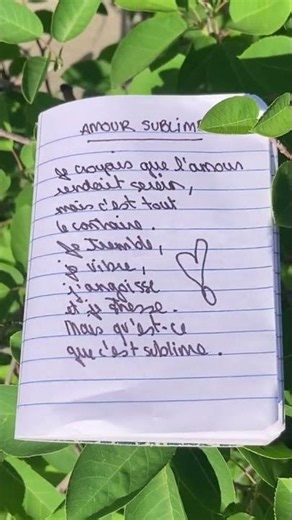 AMOUR SUBLIME
Je croyais que l'amour
rendait serein,
mais c'est tout
le contraire.
Je tremble,
je vibre,
j'angoisse
et je stresse.
Mais qu'est-ce
que c'est sublime.